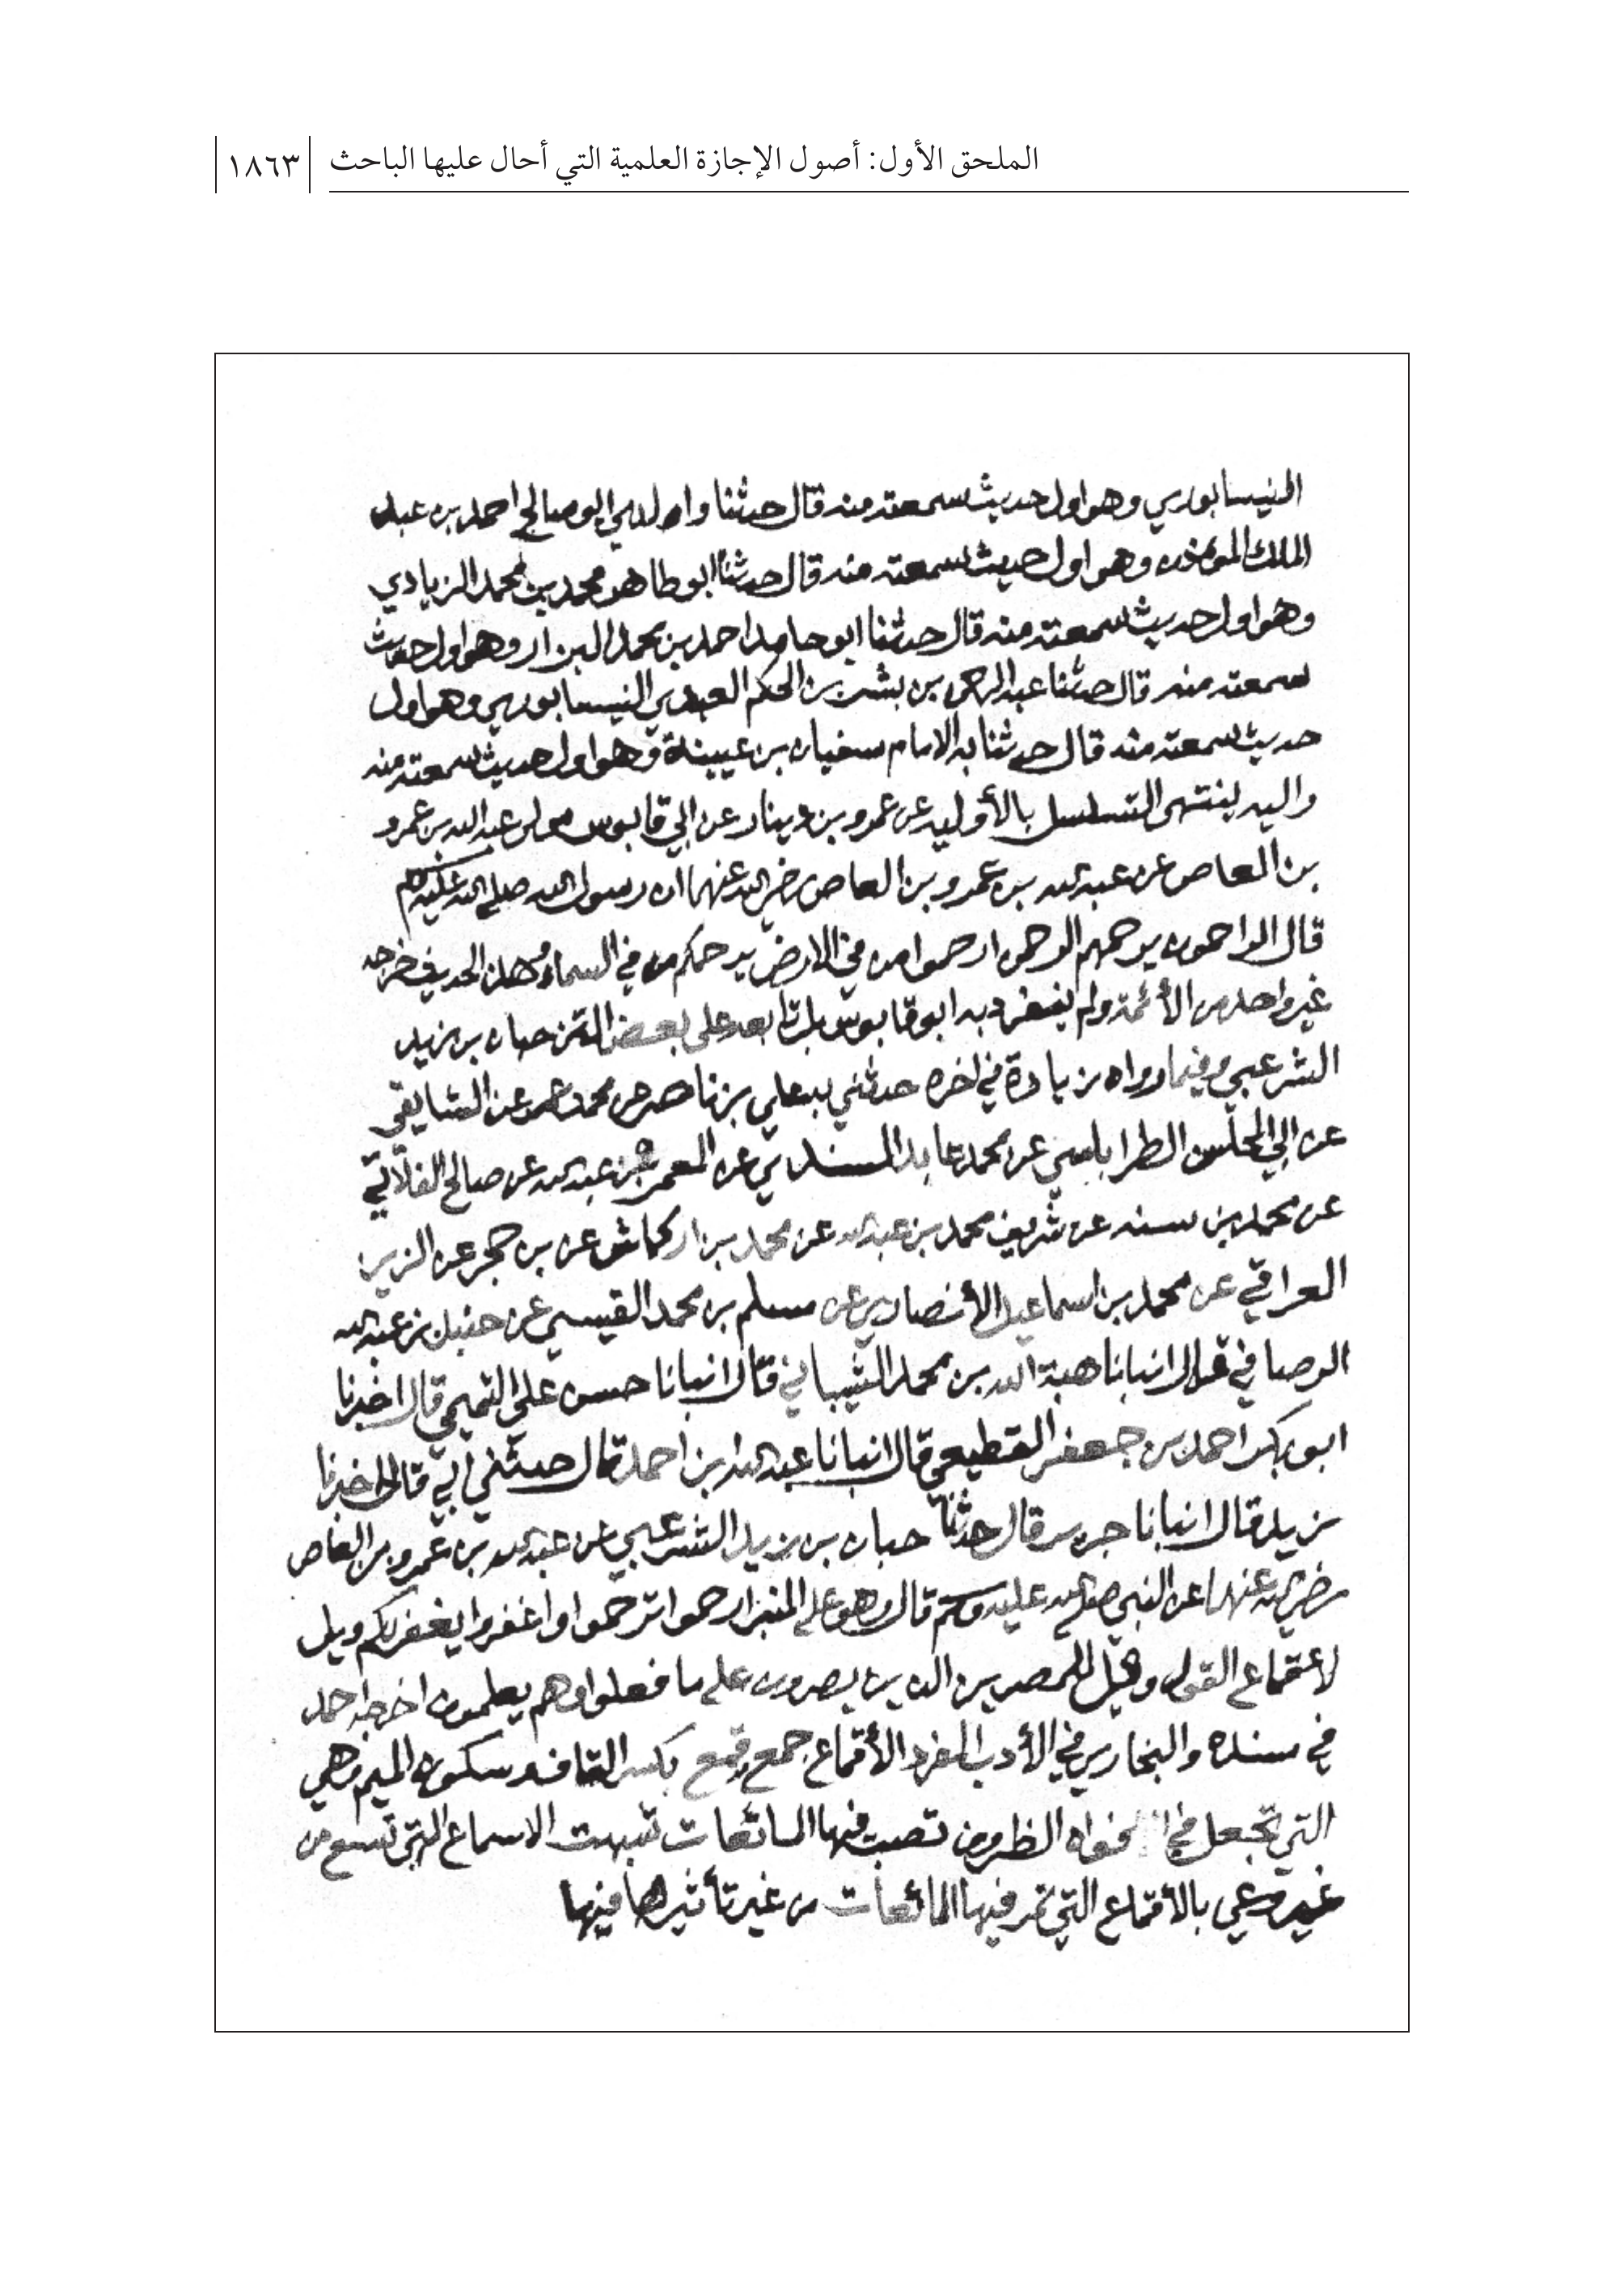 الملحق الأول: أصول الإجازة العلمية التي أحال عليها الباحث
١٨٦٣
النيسابوري وهو اول حديث سمعته منه قال حدثنا والدي ابو صالح احمد بن عبد
الملك المؤذن وهو اول حديث سمعته منه قال حدثنا ابو طاهر محمد بن محمد الزيادي
وهو اول حديث سمعته منه قال حدثنا ابو حامد احمد بن محمد البزار وهو اول حديث
سمعته منه قال حدثنا عبد الرحمن بن بشر بن الحكم العبدي النيسابوري وهو اول
حديث سمعته منه قال حدثنا به الامام سفيان بن عيينة وهو اول حديث سمعته منه
واليه ينتهى التسلسل بالأوليه عن عمرو بن دينار عن ابي قابوس مولى عبد الله بن عمرو
بن العاص عن عبد الله بن عمرو بن العاص رضي الله عنهما ان رسول الله صلى الله عليه وسلم
قال الراحمون يرحمهم الرحمن ارحموا من في الارض يرحمكم من في السماء وهذا الحديث خرجه
غير واحد من الأئمة ولم ينفرد به ابو قابوس بل تابعه على بعض المتن حبان بن زيد
الشرعبي وفيما رواه زيادة في اخره حدثني به علي بن ناصر عن محمد عن الشايقي
عن ابي المحاسن الطرابلسي عن محمد عابد السندي عن المعمر بن عبد الله عن صالح الفلاني
عن محمد بن سنه عن شريف محمد بن عبد الله عن محمد بن اركماش عن بن حجر عن الزين
العراقي عن محمد بن اسماعيل الأنصاري عن مسلم بن محمد القيسي عن حنبل بن عبد الله
الرصافي قال انبانا هبة الله بن محمد الشيباني قال انبانا حسن علي التميمي قال اخبرنا
ابو بكر احمد بن جعفر القطيعي قال انبانا عبد الله بن احمد قال حدثني ابي قال اخبرنا
يزيد قال انبانا جرير قال حدثنا حبان بن زيد الشرعبي عن عبد الله بن عمرو بن العاص
رضي الله عنهما عن النبي صلى الله عليه وسلم قال وهو على المنبر ارحموا ترحموا واغفروا يغفر لكم ويل
لاقماع القول وويل للمصرين الذين يصرون على ما فعلوا وهم يعلمون اخرجه احمد
في سنده والبخاري في الأدب المفرد الأقماع جمع قمع بكسر القاف وسكون الميم وهي
التي تجعل في افواه الظروف تصب فيها المائعات شبهت الاسماع التي تسمع من
غير وعي بالأقماع التي تمر فيها المائعات من غير تأثيرها فيها